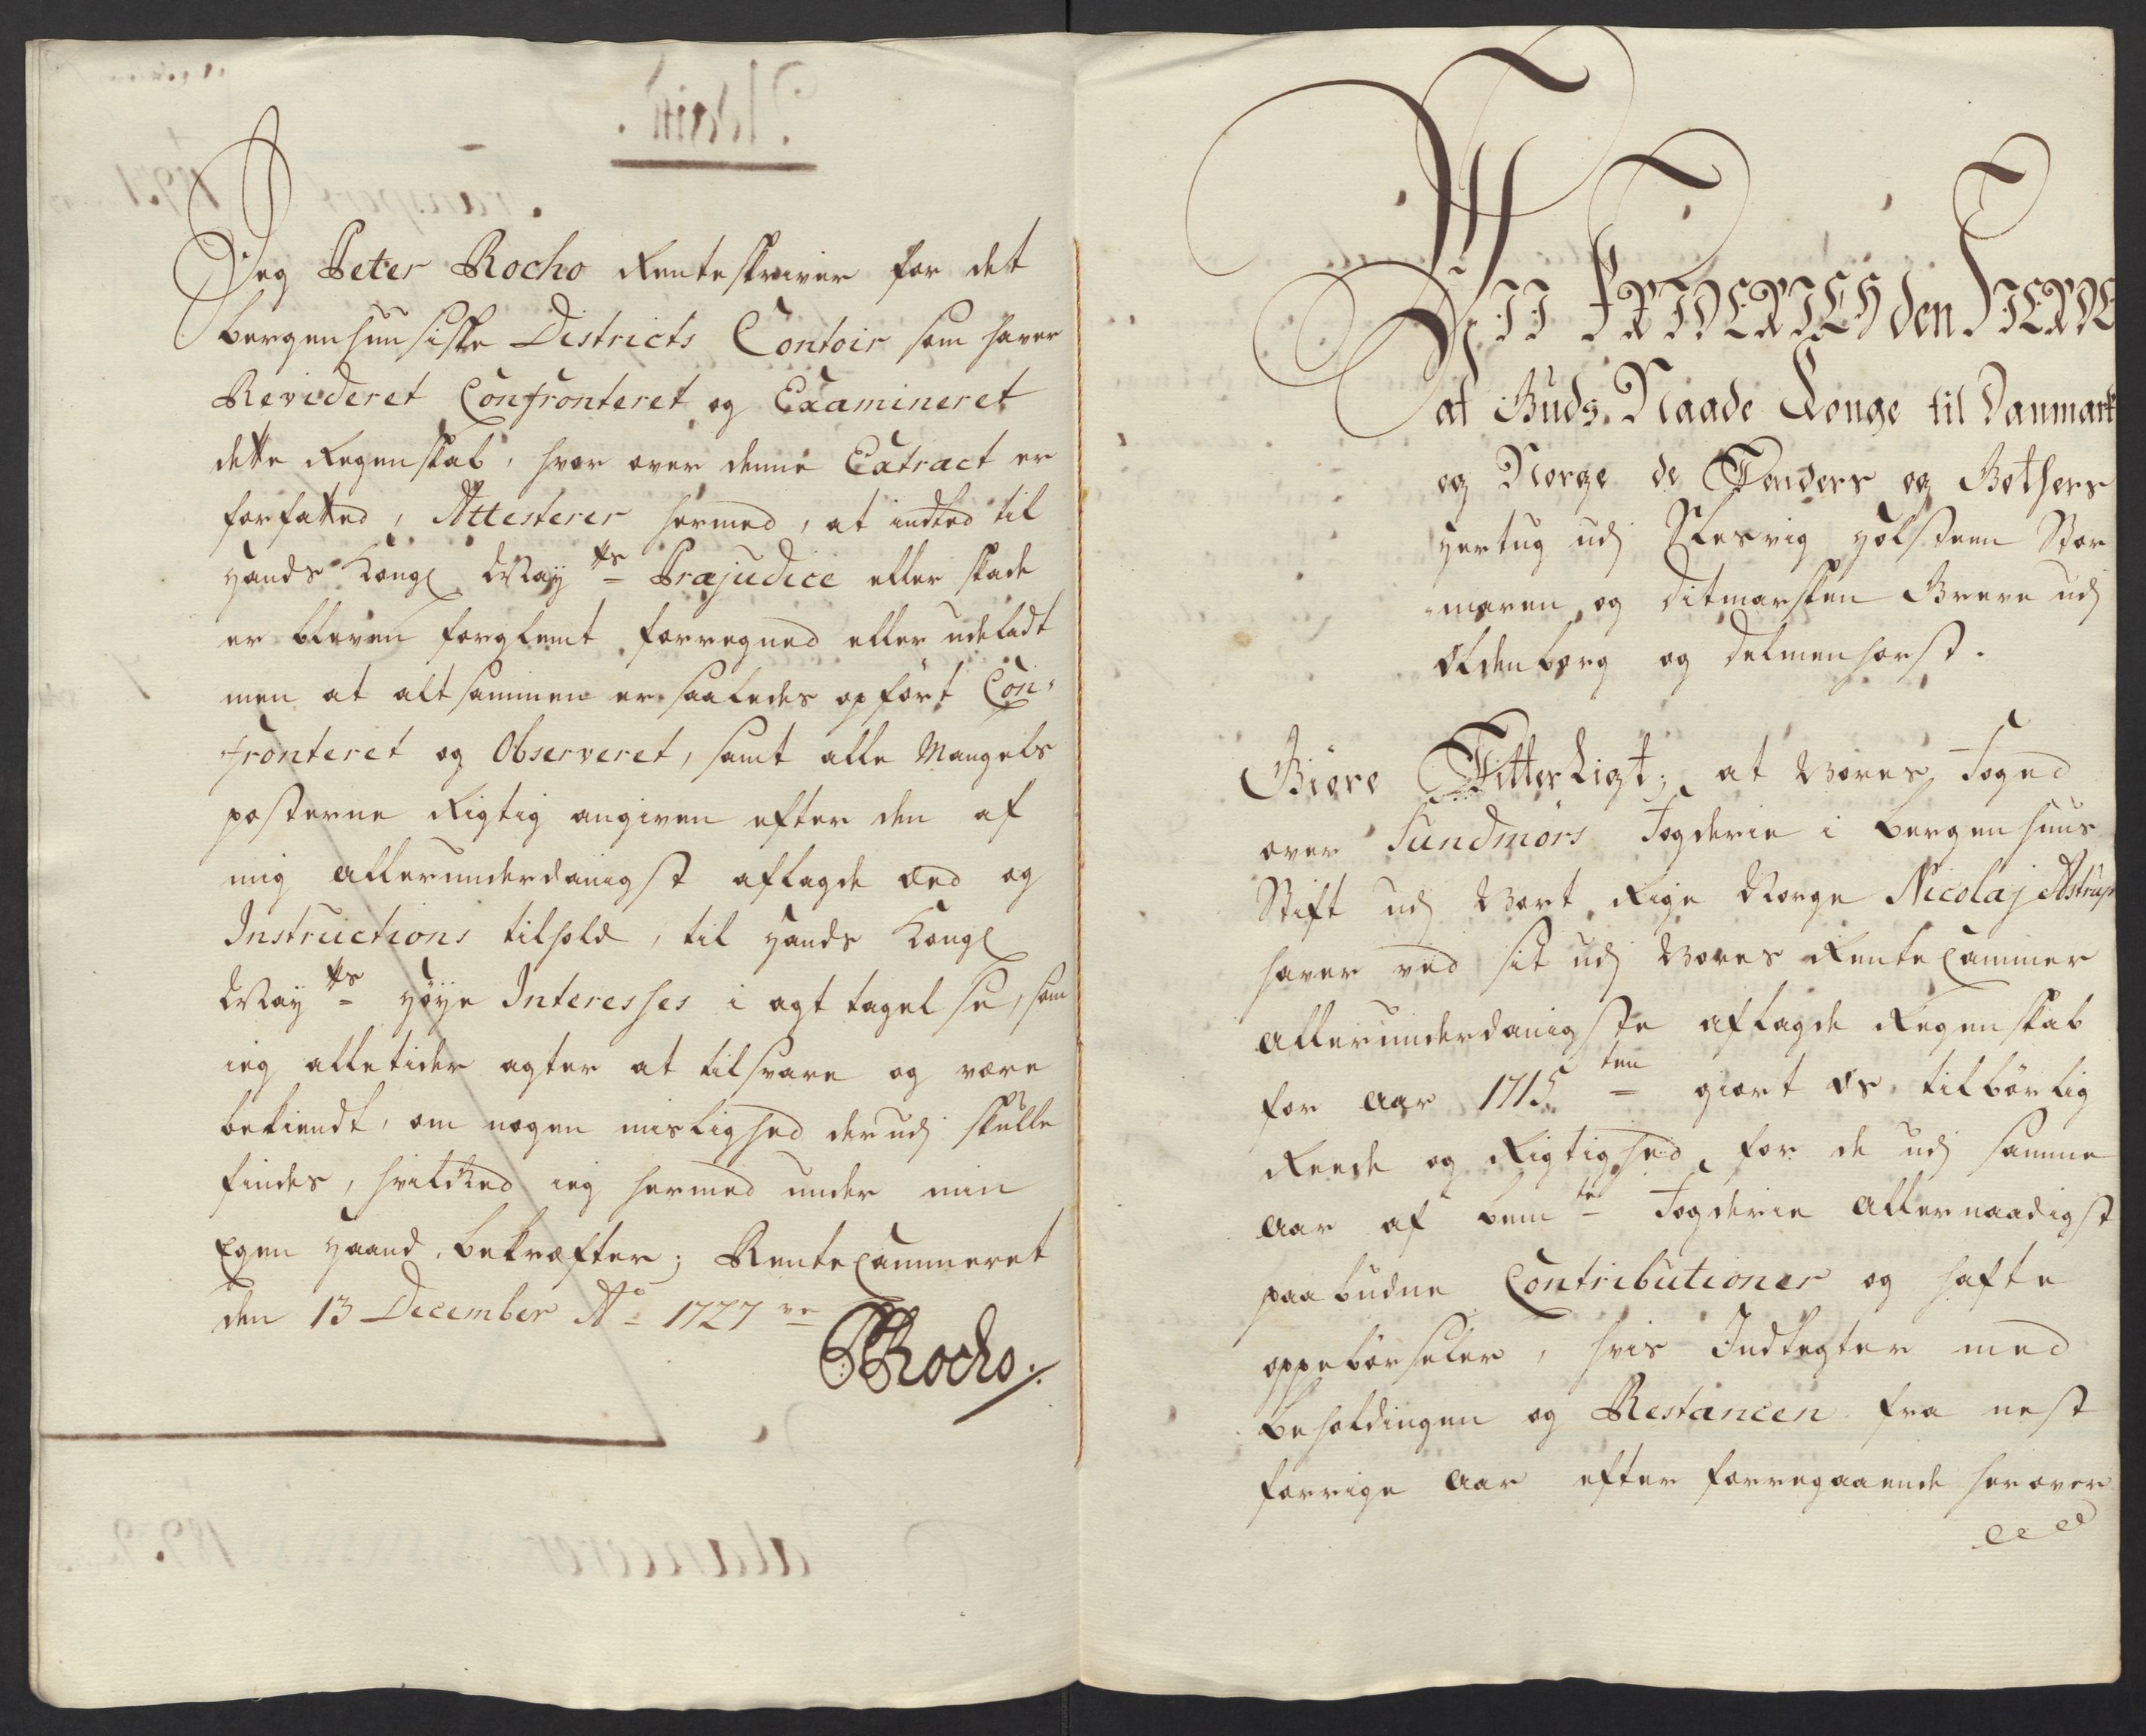 Jeg Peter Rocho Renteskriver for det
bergenhuusiske Districts Contoir som haver
Revideret Confronteret og Examineret
dette Regenskab, hvor over denne Extract er
forfatted, Attesterer hermed, at indted til
Hands Kongl Maytts Præjudice eller skade
er bleven forglemt forregned eller udeladt
men at altsammen er saaledes opført Con,
fronteret og Observeret, samt alle Mangels
posterne Rigtig angiven efter den af
mig allerunderdanigst aflagde Eed og
Instructions tilhold, til Hands Kongl
Maytts Høye Interesses i agt tagelse, som
ieg alletider agter at tilsvare og være
bekiendt, om nogen mislighed derudj skulle
findes, hvilcked ieg hermed under min
Egen Haand bekræfter; RenteCammeret
den 13 December Ao 1727 ve
PRocho.
WII FRIDERICH den FIERDE
af Guds Naade Konge til Danmark
og Norge de Wenders og Gothers
Hertug udj Slesvig Holsteen Stor
maren og Ditmarsken Greve udj
Oldenborg og Delmenhorst.
Giøre Witterligt; at Vores Foged
over Sundmørs Fogderie i Bergenhuus
Stift udj Vort Rige Norge Nicolaj Astrup
haver ved sit udj Vores RenteCammer
allerunderdanigste aflagde Regenskab
for Aar 1715 ten giort os tilbørlig
Reede og Rigtighed for de udj samme
Aar af bemte Fogderie allernaadigst
paabudne Contributioner og hafte
oppebørseler, hvis Indtegter med
beholdingen og Restancen fra nest
forrige Aar efter forregaaende herover